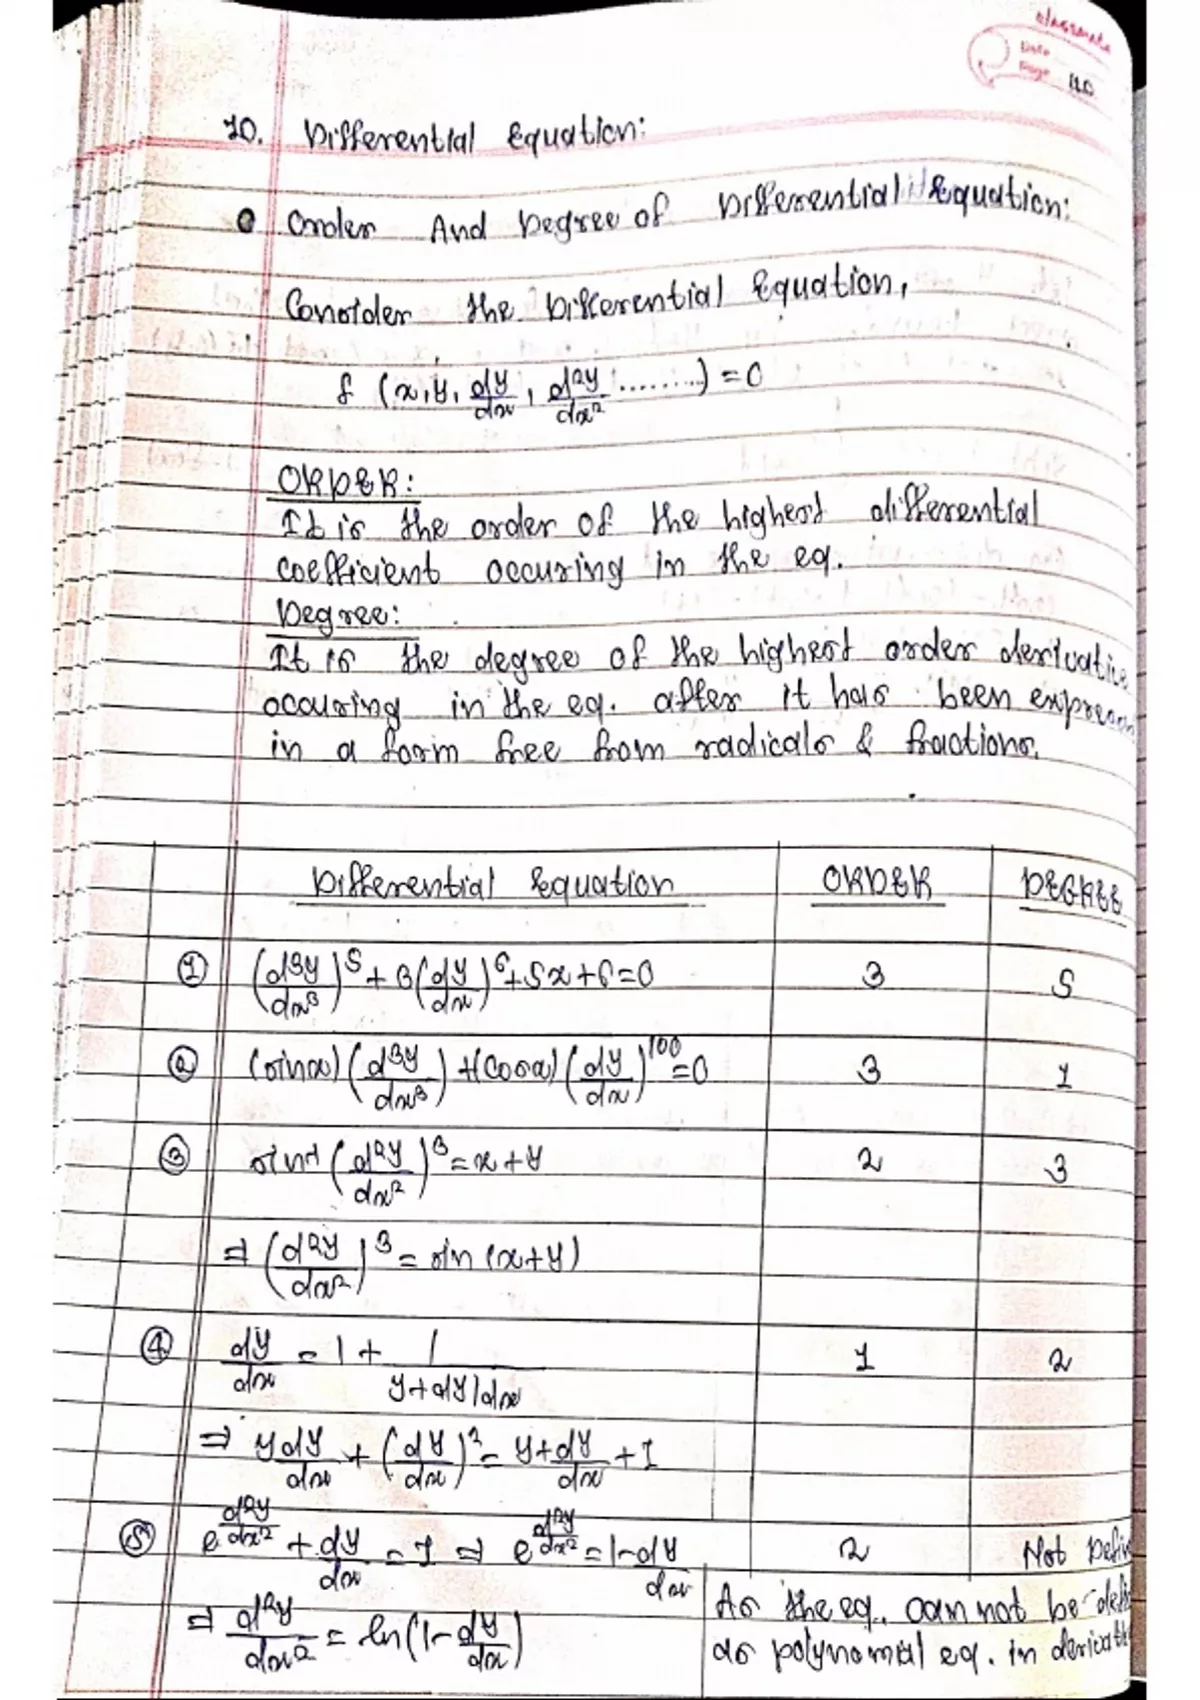 classmate
Date
Page 110
10. Differential Equation:
Order And Degree of Differential Equation:
Consider the Differential Equation,
f (x, y, dy/dx, d²y/dx² ........) = 0
ORDER:
It is the order of the highest differential
coefficient occuring in the eq.
Degree:
It is the degree of the highest order derivative
occuring in the eq. after it has been express
in a form free from radicals & fractions.
Differential Equation ORDER DEGREE
① (d³y/dx³)⁵ + 3(dy/dx)⁶ + 5x + 6 = 0 3 5
② (sinx)(d³y/dx³) + (cosx)(dy/dx)¹⁰⁰ = 0 3 1
③ sin⁻¹(d²y/dx²)³ = x + y 2 3
⇒ (d²y/dx²)³ = sin (x+y)
④ dy/dx = 1 + 1/(y + dy/dx) 1 2
⇒ y dy/dx + (dy/dx)² = y + dy/dx + 1
⑤ e^(d²y/dx²) + dy/dx = 1 ⇒ e^(d²y/dx²) = 1 - dy/dx 2 Not Defin
⇒ d²y/dx² = ln(1 - dy/dx)
As the eq. can not be defi
as polynomial eq. in derivati